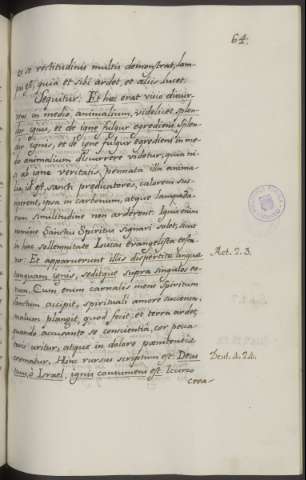 64.
et se rectitudinis multis demonstrat, lam-
pas est, quia et sibi ardet, et aliis lucet.
Sequitur. Et haec erat visio discur-
rens in medio animalium, videlicet, splen-
dor ignis, et de igne fulgur egrediens. Splen-
dor ignis, et de igne fulgur egrediens in me-
dio animalium discurrere videtur, quia ni-
si ab igne veritatis, pennata illa anima-
lia, id est, sancti praedicatores, calorem su-
merent, ipsa in carbonum, atque lampada-
rum similitudine non arderent. Ignis enim
nomine Sanctus Spiritus signari solet, de
hac sollemnitate Lucas evangelista testa-
tur: Et apparuerunt illis dispertitae linguae
tanquam ignis, seditque supra singulos eo-
rum. Cum enim carnalis mens Spiritum
Sanctum accipit, spirituali amore succensa,
malum plangit, quod fecit: et terra ardet,
quando accusante se conscientia, cor pecca-
toris uritur, atque in dolore poenitentiae
crematur. Hinc rursus scriptum est: Deus
tuus, o Israel, ignis consumens est.
crea-
Act. 2. 3.
Deut. 4. 24.